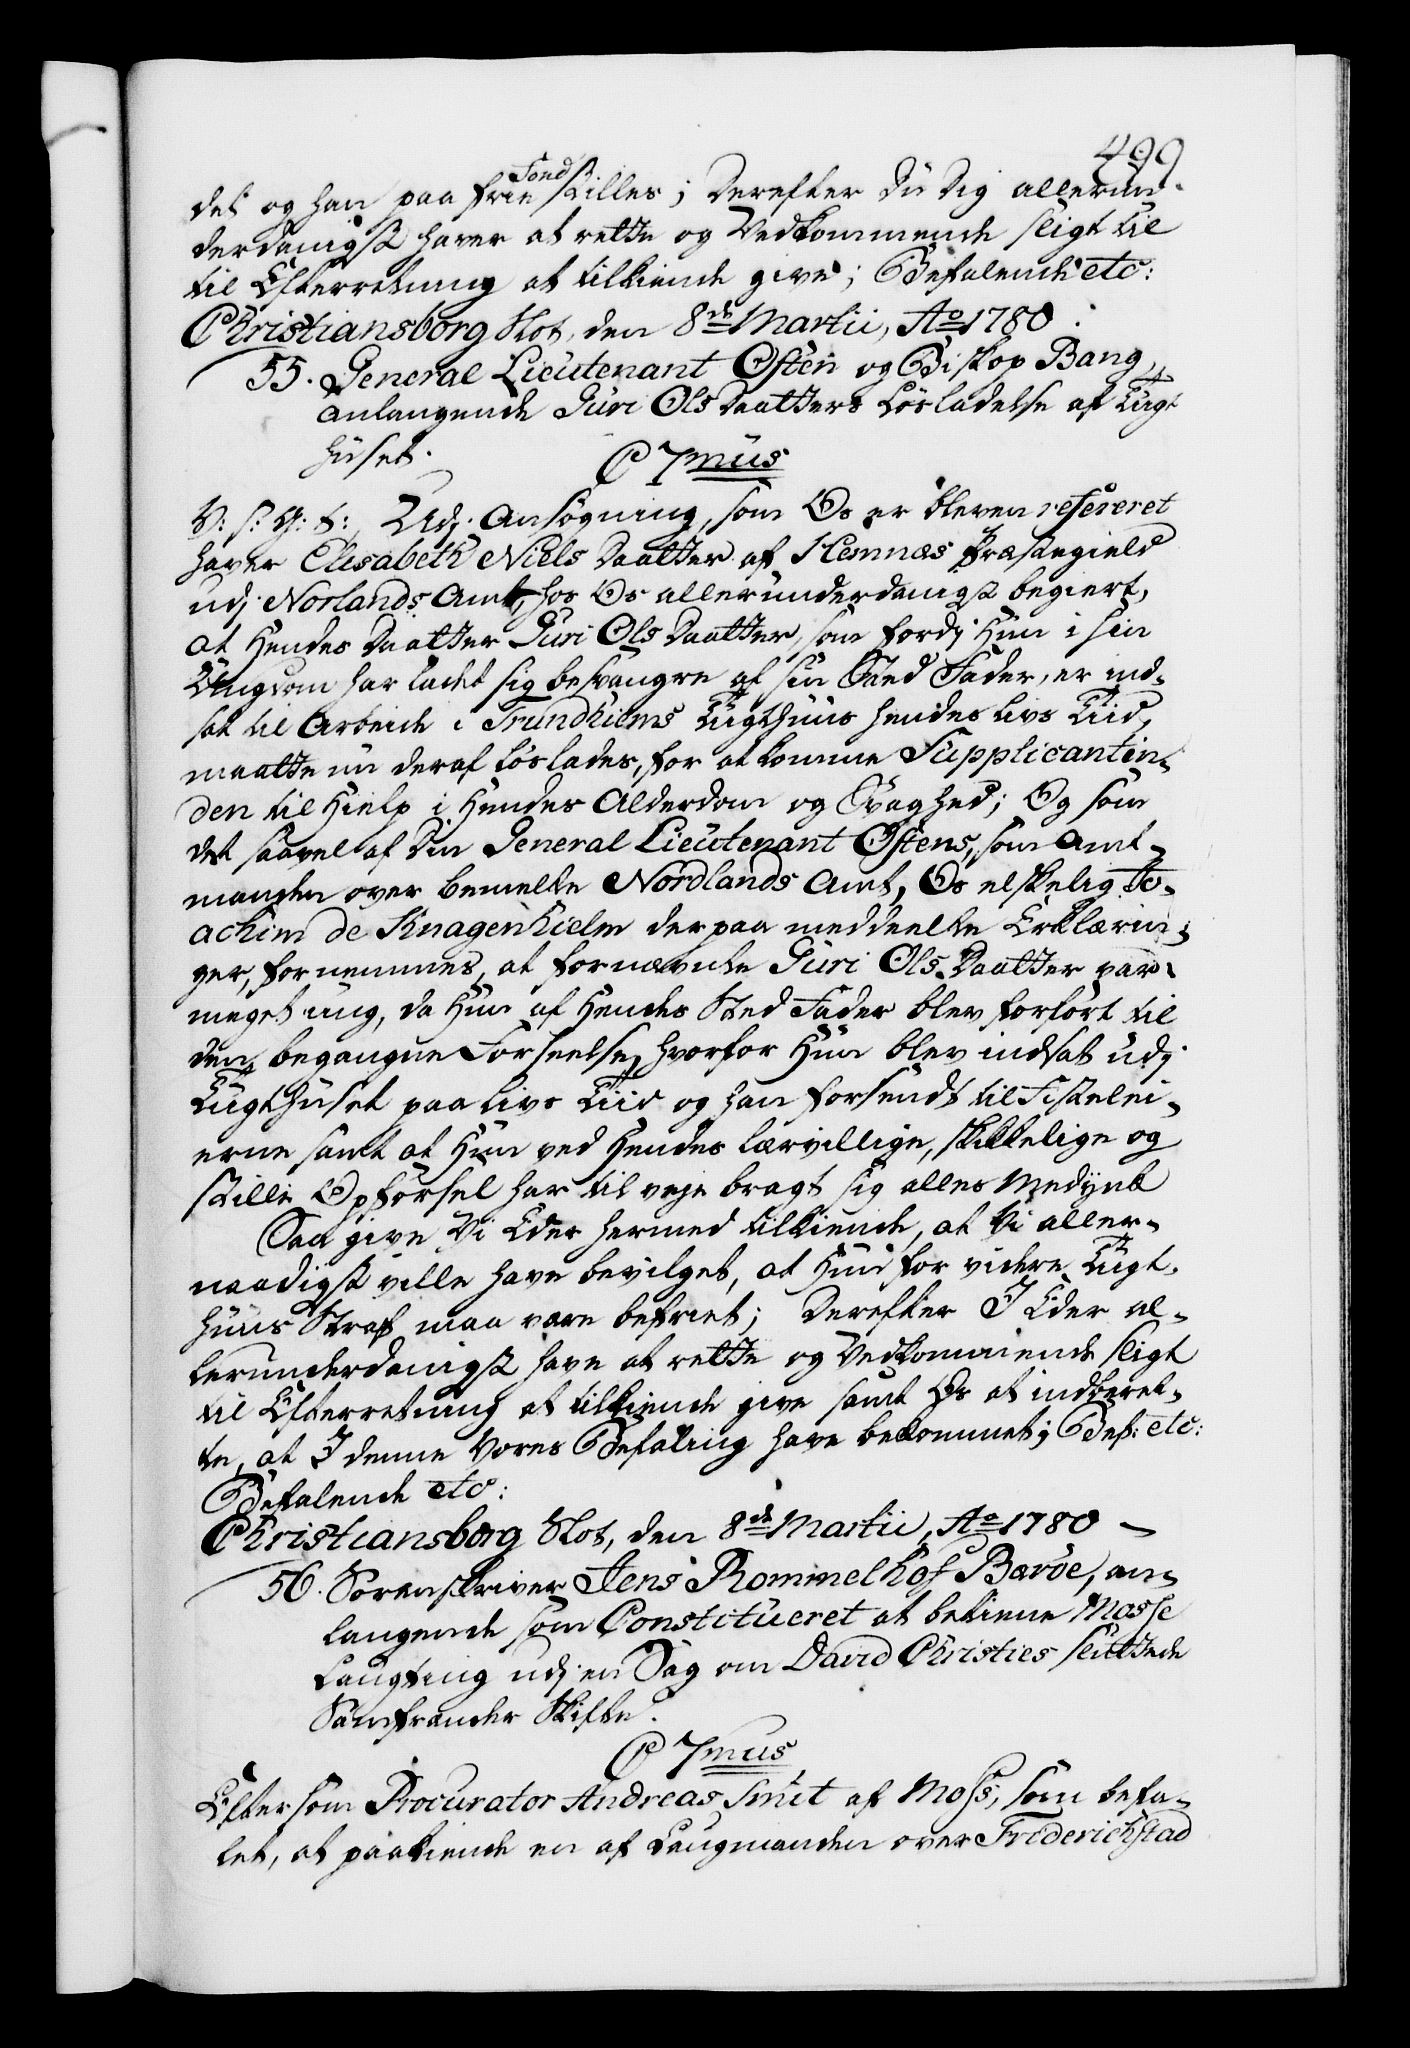 499
det og han paa frie Fod stilles; Derefter Du Dig allerun-
derdanigst haver at rette og Vedkommende sligt til
til Efterretning at tilkiende give; Befalende etc:
Christiansborg Slot, den 8de Martii, Ao 1780.
55. General Lieutenant Osten og Biskop Bang,
anlangende Guri Ols Daatters Løsladelse af Tugt
huset.
C 7mus
V: S: G: T:, Udj Ansøgning, som Os er bleven refereret
haver Elisabeth Niels Daatter af Hemnæs Præstegield
udj Norlands Amt, hos Os allerunderdanigst begiert,
at Hendes Daatter Guri Ols Daatter, som fordj Hun i sin
Ungdom har ladet sig besvangre af sin Sted Fader, er ind-
sat til Arbeide i Trundhiems Tugthuus hendes Livs Tiid,
maatte nu deraf løslades, for at komme Supplicantin-
den til Hielp i Hendes Alderdom og Svaghed; Og som
det saavel af Din General Lieutenant Ostens, som Amt-
manden over bemelte Nordlands Amt, Os elskelig Jo-
achim de Knagenhielm derpaa meddeelte Erklærin-
ger, fornemmes, at fornævnte Guri Ols Daatter var
meget ung, da Hun af Hendes Sted Fader blev forført til
den begangne Forseelse, hvorfor Hun blev indsat udj
Tugthuset paa Livs Tiid og han forsendt til Fisteleir-
erne samt at Hun ved Hendes lærvillige, skikkelige og
stille Opførsel har til veje bragt sig alles Medynk
Saa give Vi Eder hermed tilkiende, at Vi aller-
naadigst ville have bevilget, at Hun for videre Tugt-
huus Straf maa være befriet; Derefter I Eder al-
lerunderdanigst have at rette og Vedkommende sligt
til Efterretning at tilkiende give samt Os at indberet-
te, at I denne Vores Befaling have bekommet; Bef: etc:
Befalende etc:
Christiansborg Slot, den 8de Martii, Ao 1780 –
56. Sorenskriver Jens Rommelhof Barøe, an-
langende som Constitueret at betiene Mosse
Laugting udj en Sag om David Christies sluttede
Samfrænder Skifte.
C 7mus
Eftersom Procurator Andreas Smit af Moss, som befa-
let, at paakiende en af Laugmanden over Friderichstad